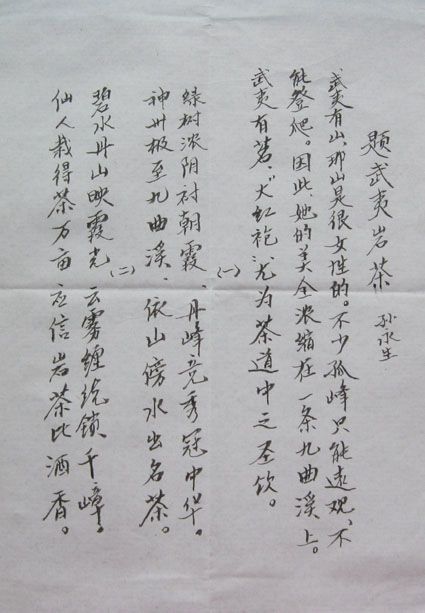 题武夷岩茶
孙永生
武夷有山,那山是很女性的。不少孤峰只能远观、不
能登爬。因此,她的美全浓缩在一条九曲溪上。
武夷有茗,“大红袍”尤为茶道中之圣饮。
(一)
绿树浓阴衬朝霞、丹峰竞秀冠中华。
神州极至九曲溪、依山傍水出名茶。
(二)
碧水丹山映霞光 云雾缠绕锁千嶂,
仙人栽得茶万亩 应信岩茶比酒香。